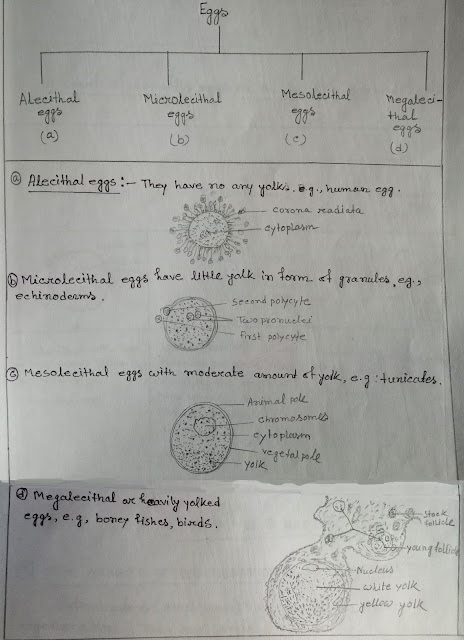 Eggs
Alecithal
eggs
(a)
Microlecithal
eggs
(b)
Mesolecithal
eggs
(c)
Megaleci-
thal
eggs
(d)
ⓐ Alecithal eggs:- They have no any yolks. e.g., human egg.
corona radiata
cytoplasm
ⓑ Microlecithal eggs have little yolk in form of granules, eg.,
echinoderms.
Second polycyte
Two pronuclei
First polycyte
ⓒ Mesolecithal eggs with moderate amount of yolk, e.g: tunicates.
Animal pole
chromosomes
cytoplasm
vegetal pole
yolk
ⓓ Megalecithal or heavily yolked
eggs, e.g, boney fishes, birds.
stock
follicle
young follicle
Nucleus
white yolk
yellow yolk